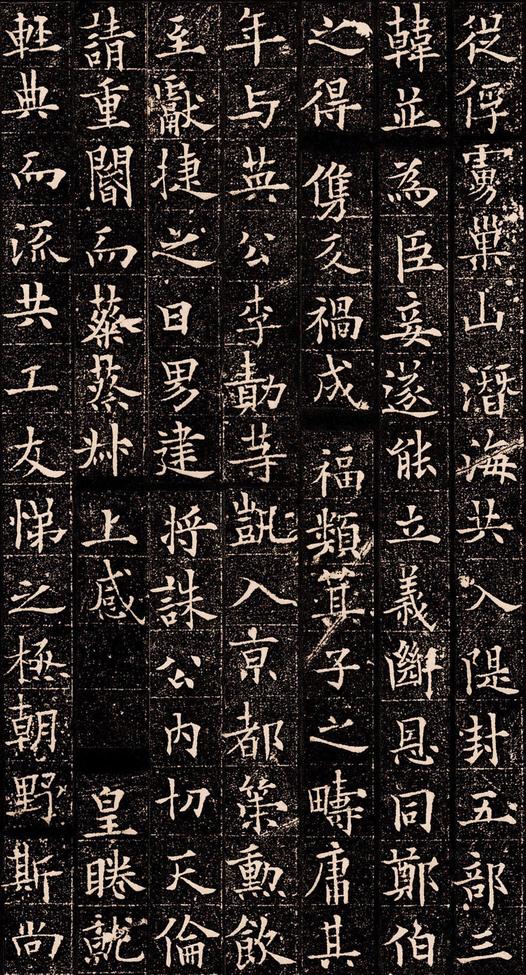 從俘巢山潛海共入隄封五部三
韓並為臣妾遂能立義斷恩同鄭伯
之得儁反禍成福類箕子之疇庸其
年与英公李勣等凱入京都策勳飲
至獻捷之日男建將誅公内切天倫
請重闇而蔡蔡叔上感皇睠就
輕典而流共工友悌之極朝野斯尚